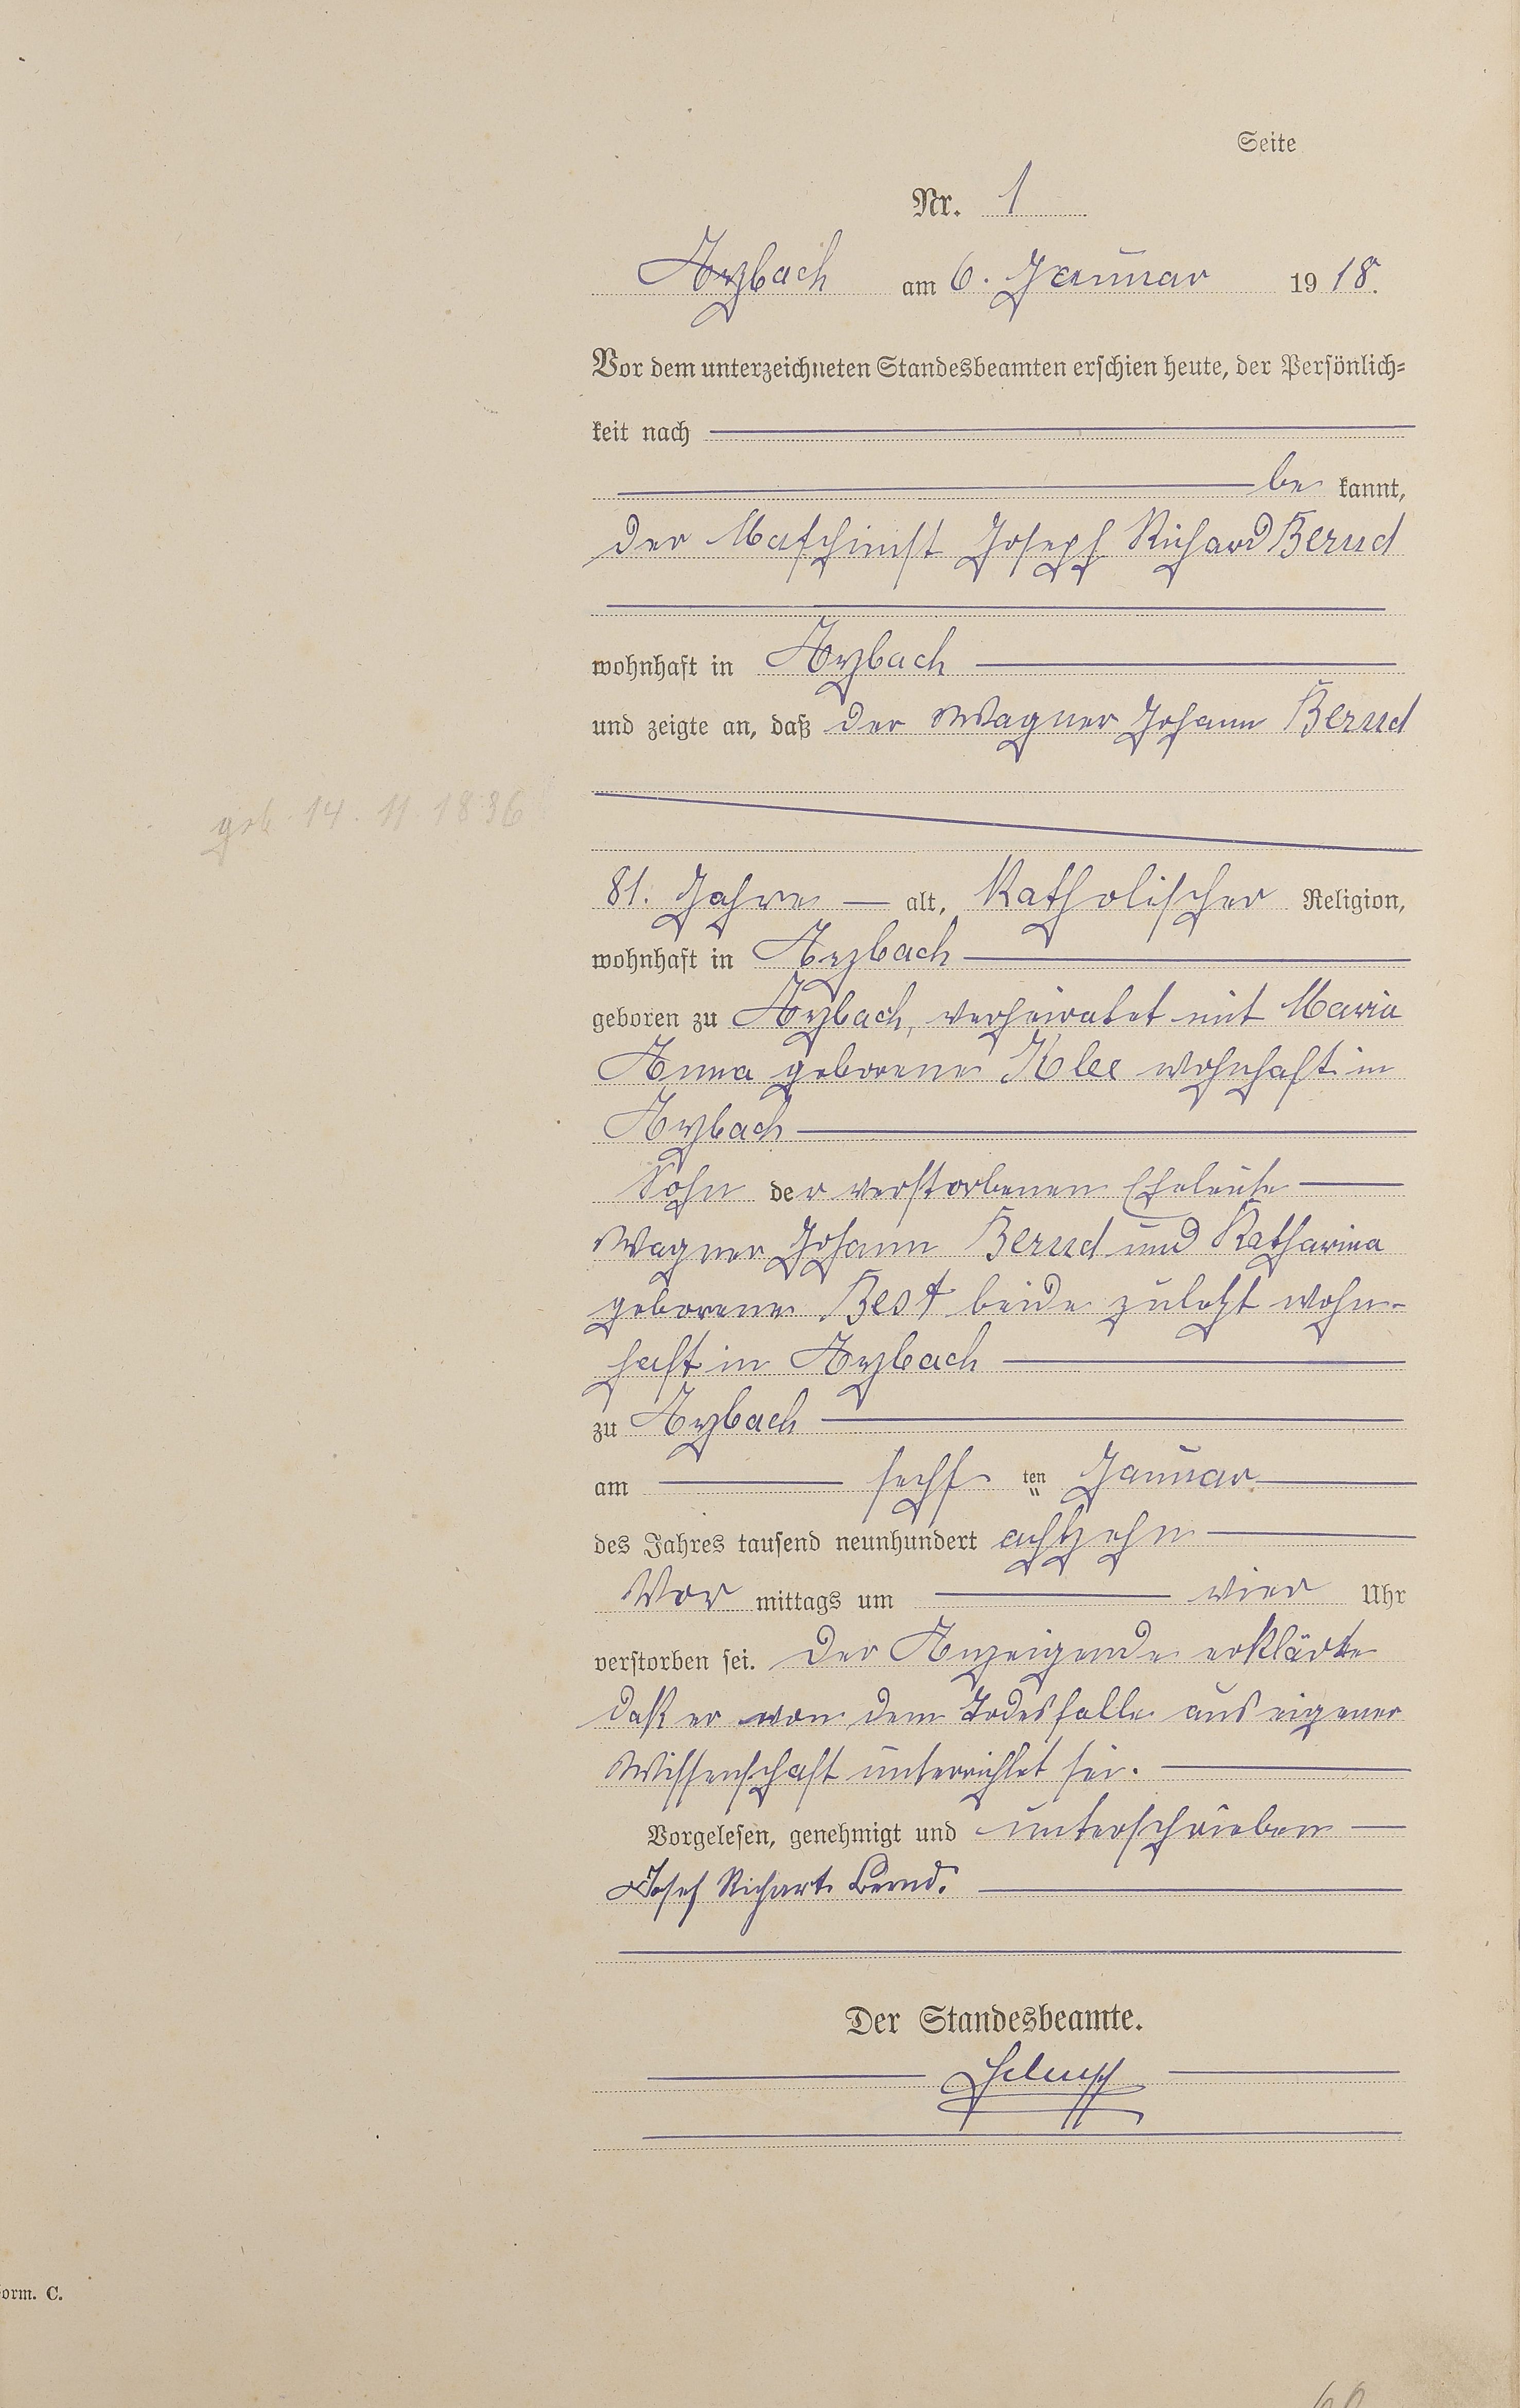 Seite
Nr. 1
Arzbach am 6. Januar 1918.
Vor dem unterzeichneten Standesbeamten erschien heute, der Persönlich-
keit nach
be kannt,
der Maschinist Joseph Richard Bernd
wohnhaft in Arzbach
und zeigte an, daß der Wagner Johann Bernd
geb. 14. 11. 1836
81. Jahre alt, Katholischer Religion,
wohnhaft in Arzbach
geboren zu Arzbach, verheiratet mit Maria
Anna geborene Klee wohnhaft in
Arzbach
Sohn der verstorbenen Eheleute
Wagner Johann Bernd und Katharina
geborene Best beide zuletzt wohn-
haft in Arzbach
zu Arzbach
am sechs ten Januar
des Jahres tausend neunhundert achtzehn
Vor mittags um vier Uhr
verstorben sei. Der Anzeigende erklärte
daß er von dem Todesfalle aus eigener
Wissenschaft unterrichtet sei.
Vorgelesen, genehmigt und unterschrieben
Josef Richart Bernd.
Der Standesbeamte.
orm. C.